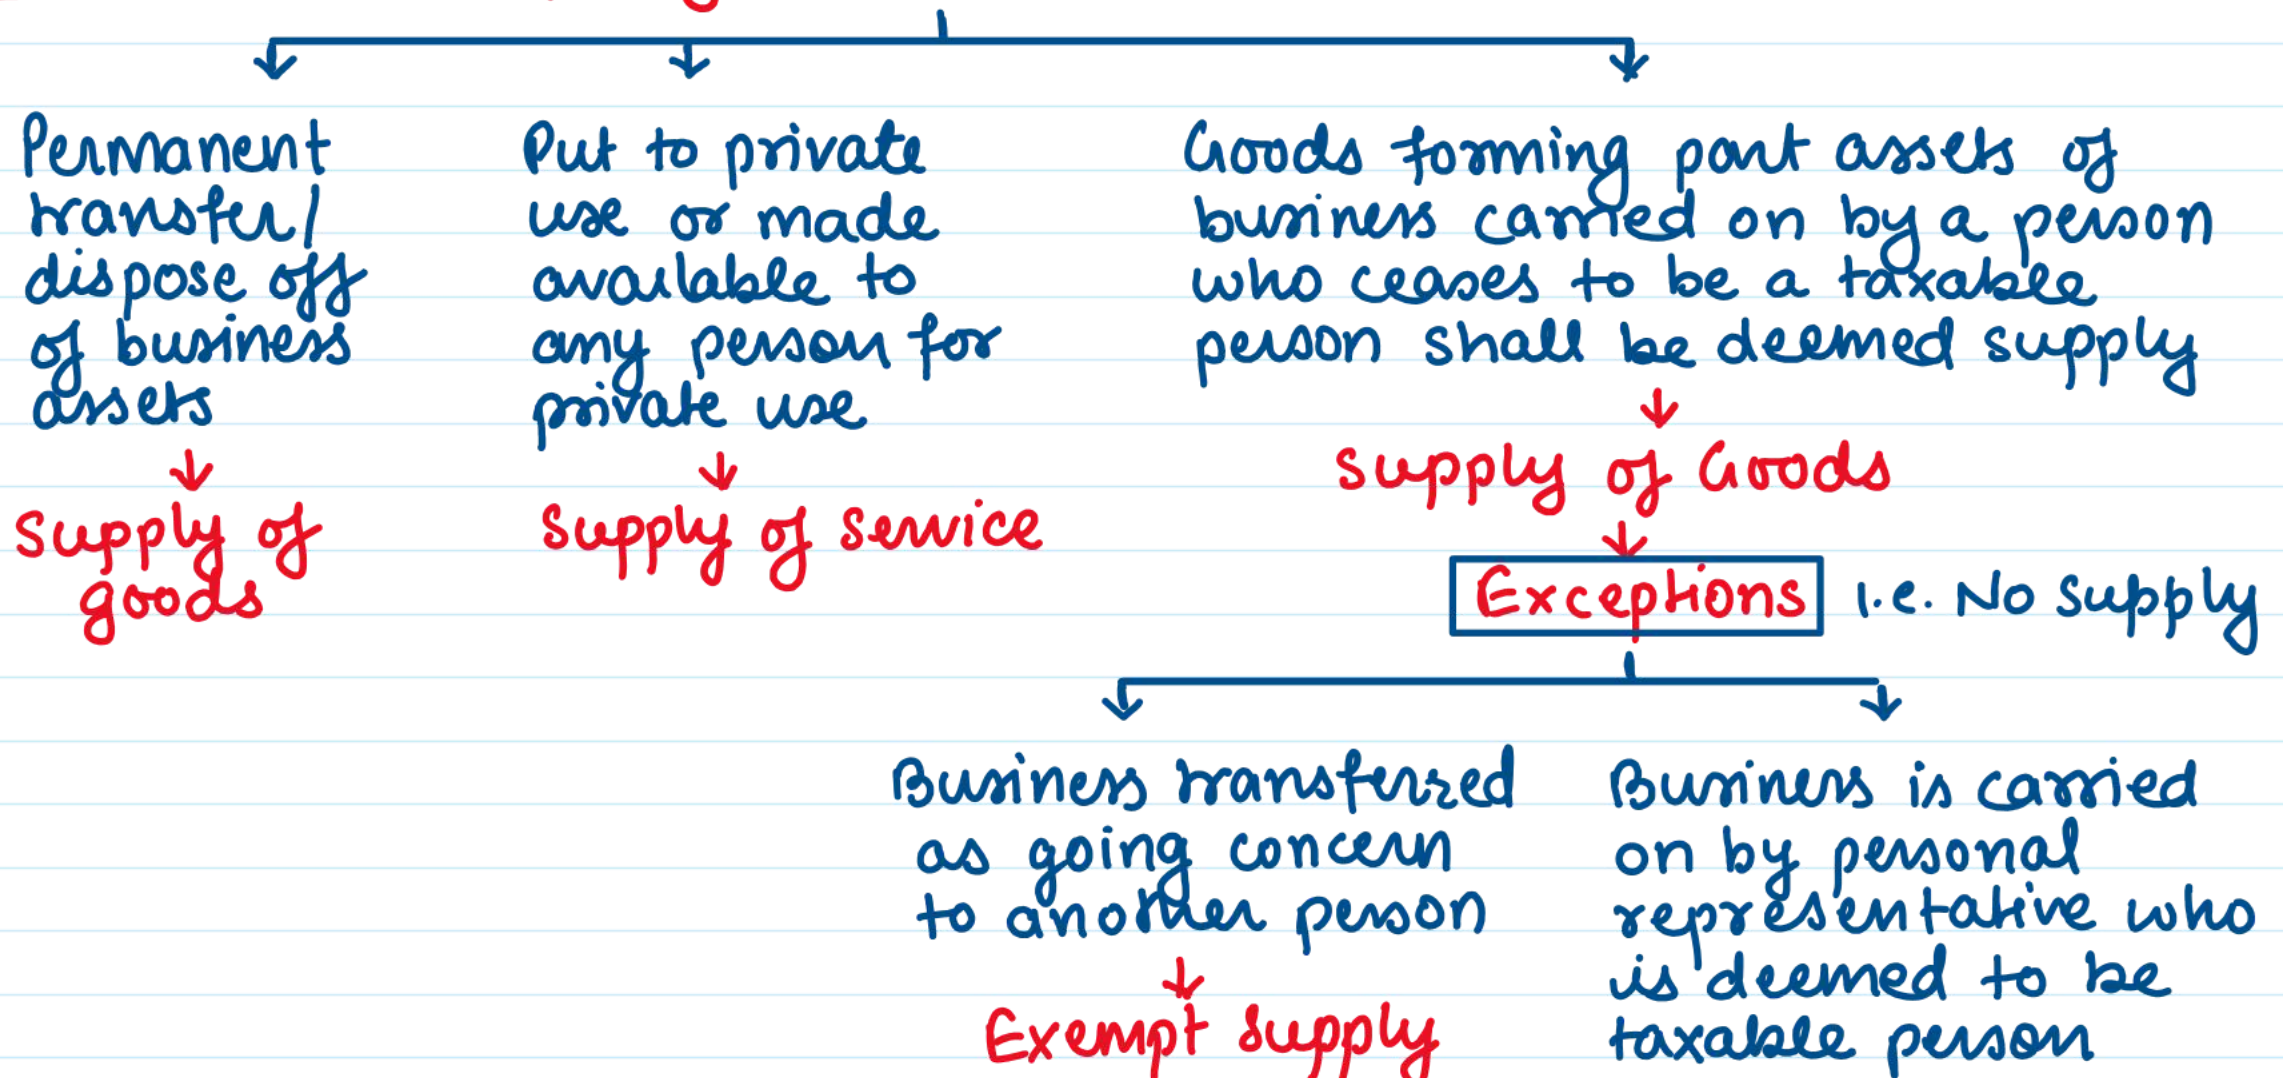 Permanent
transfer/
dispose off
of business
assets
↓
Supply of
goods
Put to private
use or made
available to
any person for
private use
↓
Supply of service
Goods forming part assets of
business carried on by a person
who ceases to be a taxable
person shall be deemed supply
↓
Supply of Goods
↓
Exceptions i.e. No supply
Business transferred
as going concern
to another person
↓
Exempt supply
Business is carried
on by personal
representative who
is deemed to be
taxable person